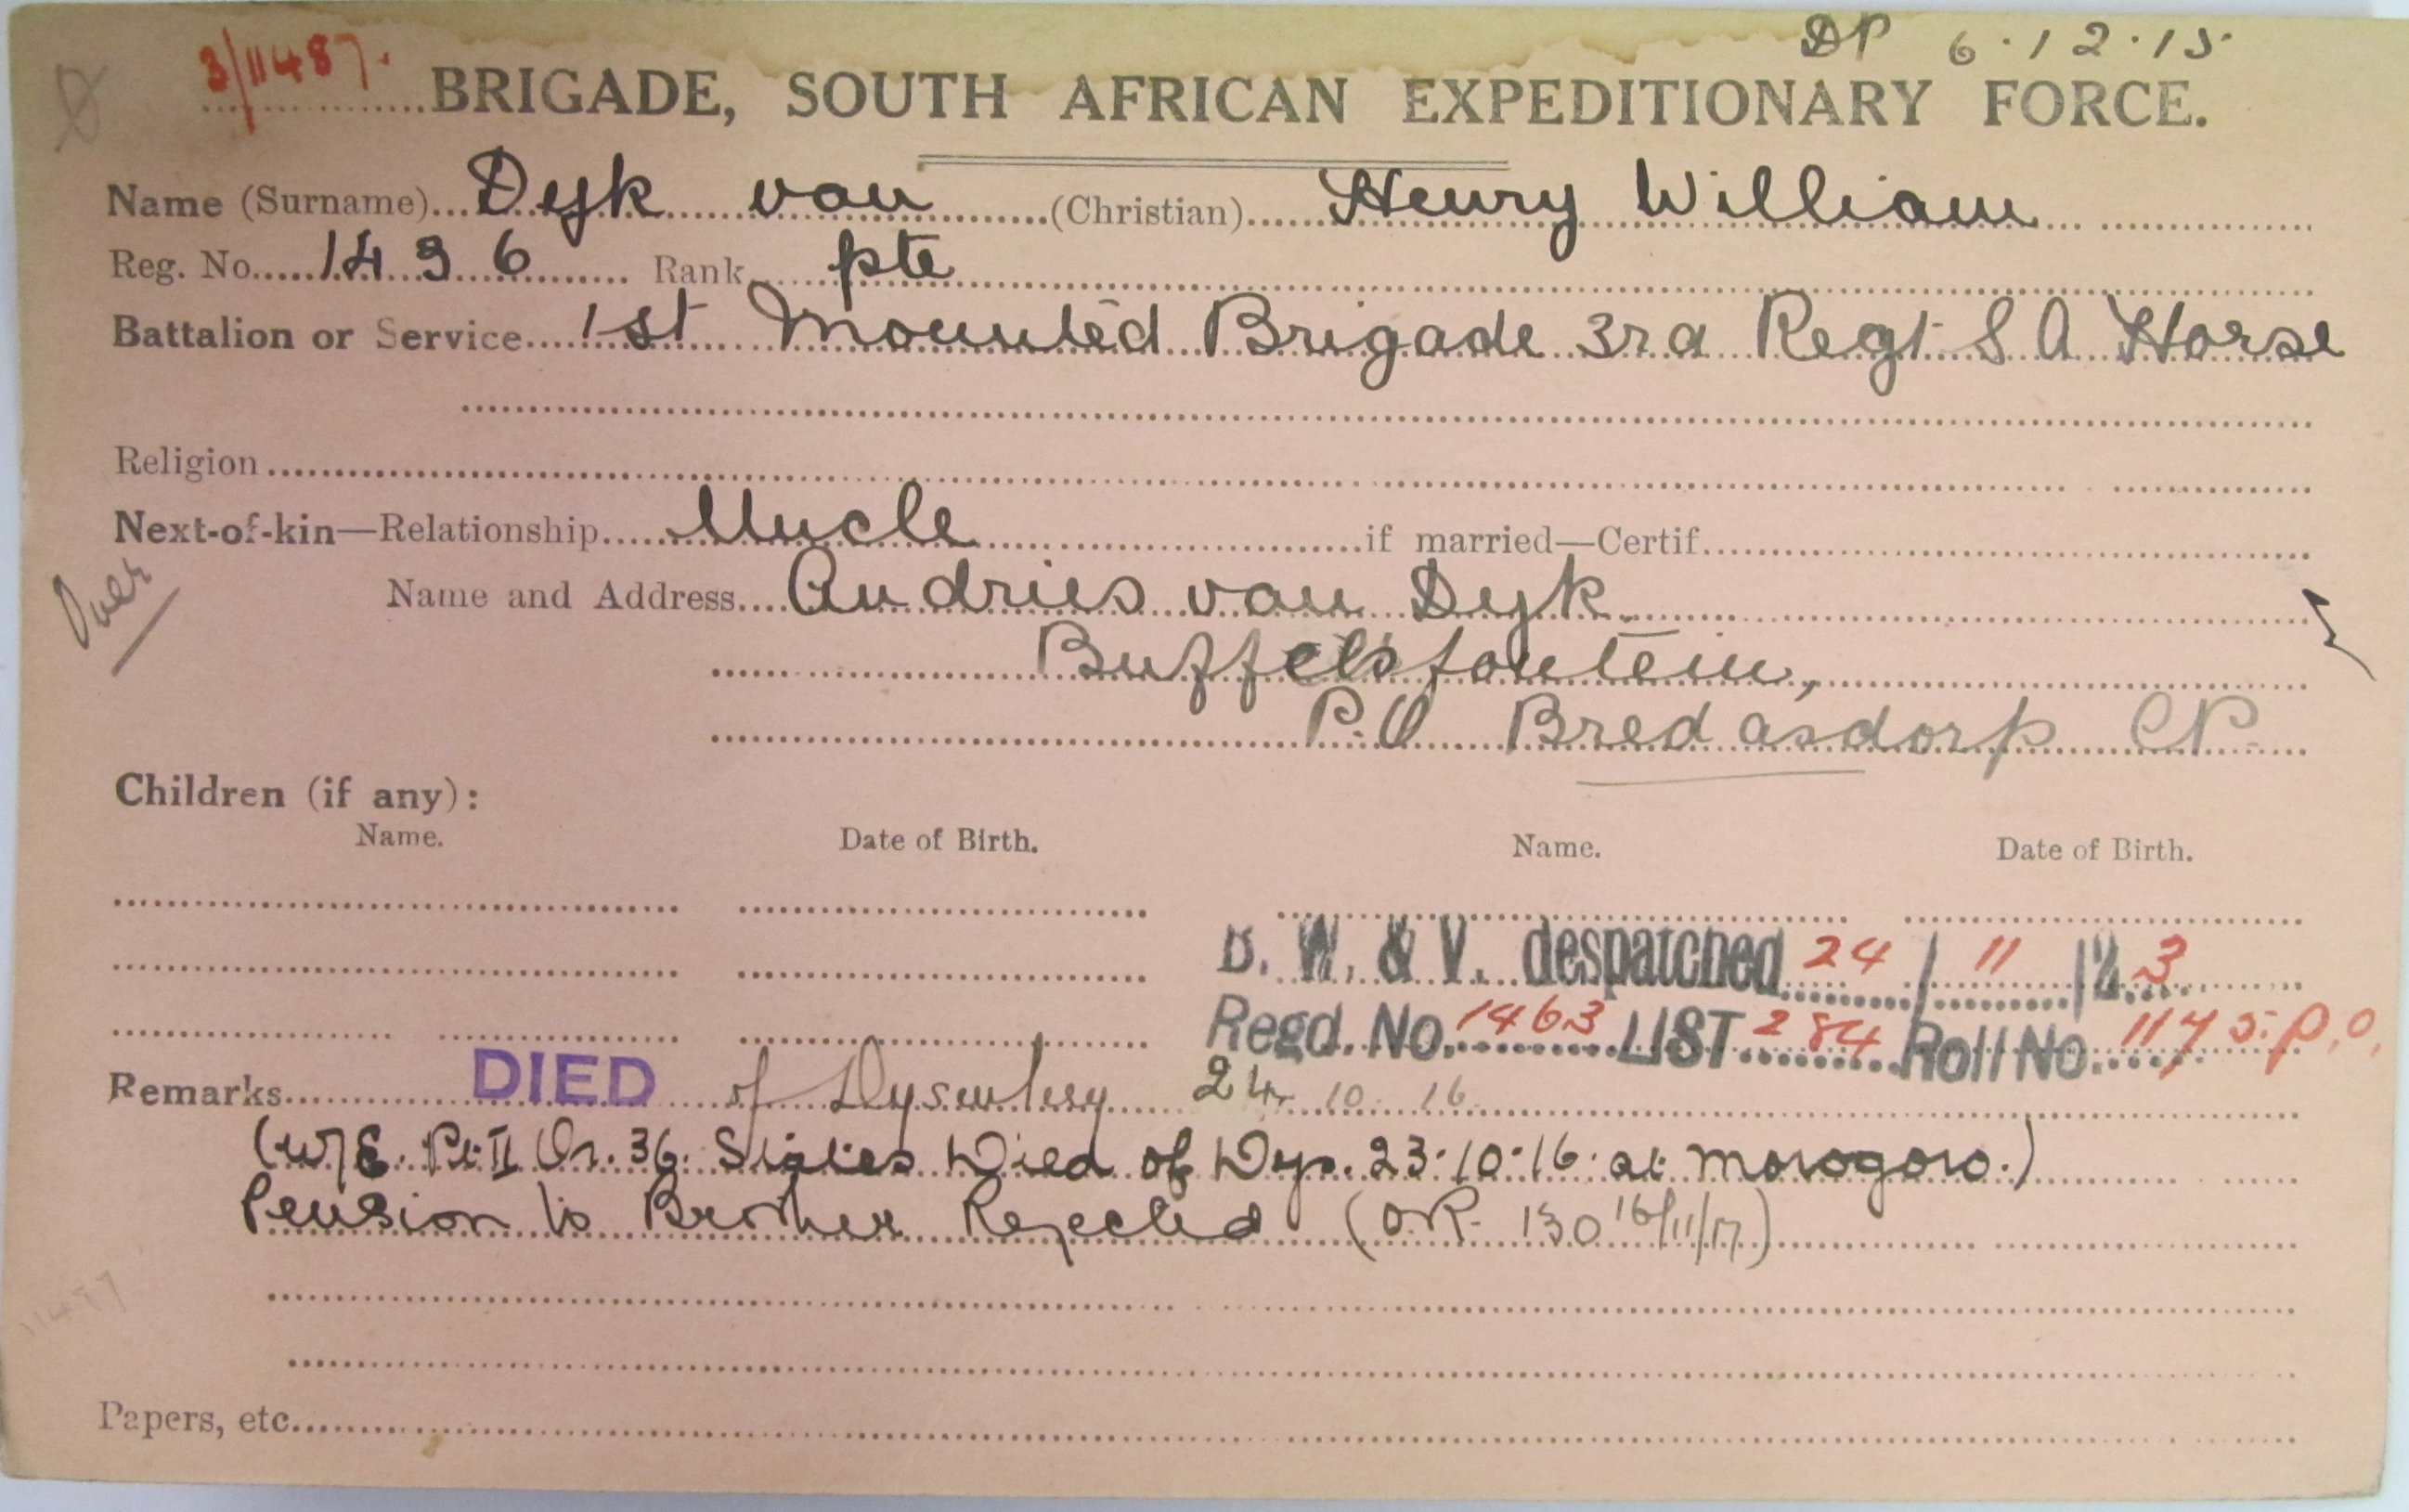 3/11487. DP 6.12.15.
BRIGADE, SOUTH AFRICAN EXPEDITIONARY FORCE.
Name (Surname) Dyk van (Christian) Henry William
Reg. No. 1436 Rank pte
Battalion or Service 1st Mounted Brigade 3rd Regt S A Horse
Religion
Next-of-kin—Relationship Uncle if married—Certif.
Over
Name and Address Andries van Dyk
Buffelsfontein,
P.O Bredasdorp CP.
Children (if any):
Name. Date of Birth. Name. Date of Birth.
B. W. & V. despatched 24/11/23
Regd. No. 1463 LIST 284 Roll No. 1175. P.O.
Remarks DIED of Dysentery 24 10 16
(W/E. Pt II Or. 36. States Died of Dys. 23.10.16. at Morogoro.)
Pension to Brother Rejected (OR 130 16/11/17)
Papers, etc.